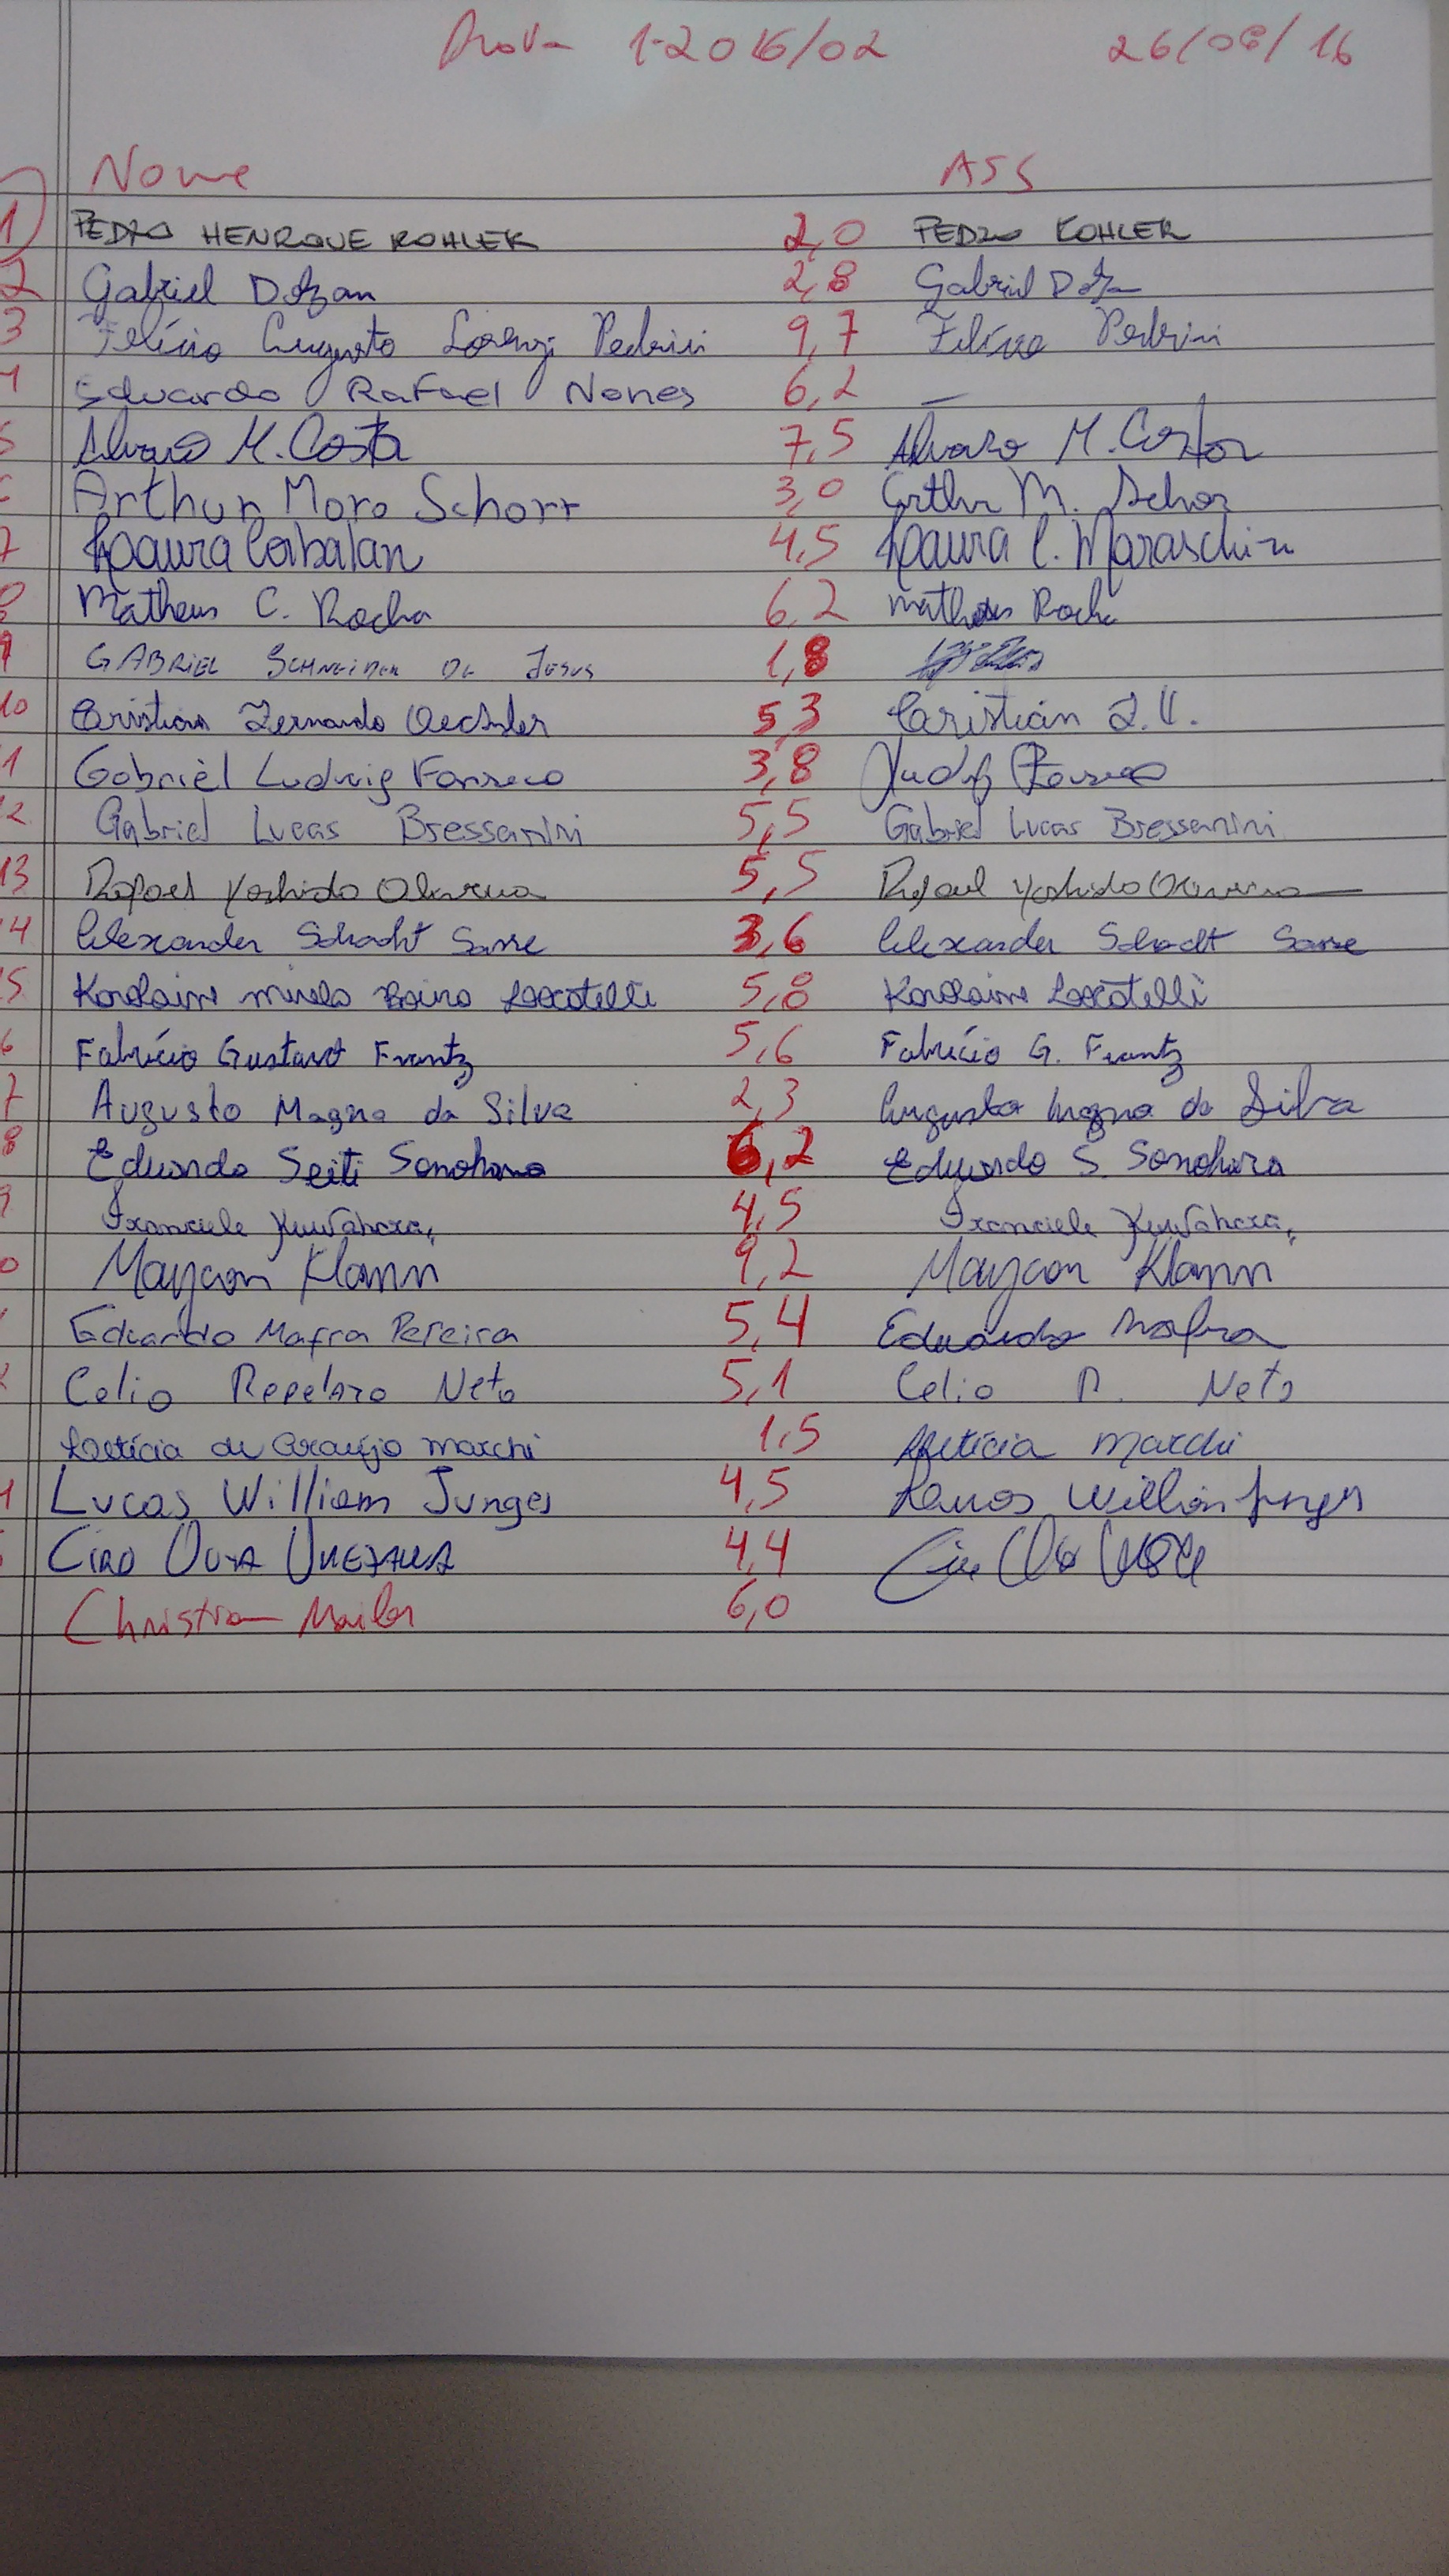 Prova 1-2016/02 26/08/16
Nome ASS
1 PEDRO HENRIQUE KOHLER 2,0 PEDRO KOHLER
2 Gabriel Dolzan 2,8 Gabriel
3 Felício Augusto Lorenzi Pedrini 9,7 Felício Pedrini
4 Eduardo Rafael Nones 6,2 —
5 Alvaro M. Costa 7,5 Alvaro M. Costa
6 Arthur Moro Schorr 3,0 Arthur M. Schorr
7 Laura Corbalan 4,5 Laura C. Maraschin
8 Matheus C. Rocha 6,2 Matheus Rocha
9 GABRIEL SCHNEIDER DE JESUS 1,8
10 Cristian Fernando Oechsler 5,3 Cristian
11 Gabriel Ludwig Fonseca 3,8 Fonseca
12 Gabriel Lucas Bressanini 5,5 Gabriel Lucas Bressanini
13 Rafael Yoshida Oliveira 5,5 Rafael Yoshida Oliveira
14 Alexander Schacht Sasse 3,6 Alexander Schacht Sasse
15 Karolaine Locatelli 5,8 Karolaine Locatelli
16 Fabrício Gustavo Frantz 5,6 Fabrício G. Frantz
7 Augusto Magna da Silva 2,3 Augusto Magna da Silva
8 Eduardo Seiti Sonohara 6,2 Eduardo S. Sonohara
9 Franciele Kuwahara, 4,5 Franciele Kuwahara,
0 Maycon Klann 9,2 Maycon Klann
Eduardo Mafra Pereira 5,4 Eduardo Mafra
Celio Neto 5,1 Celio R. Neto
Letícia de Araújo Marchi 1,5 Letícia Marchi
Lucas William Junges 4,5 Lucas William Junges
CIRO 4,4
Christian Mailer 6,0